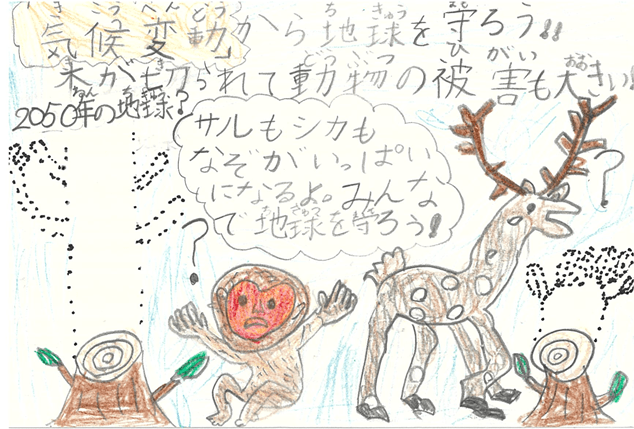 気候変動から地球を守ろう!!
木が切られて動物の被害も大きい!!
2050年の地球?
サルもシカも
なぞがいっぱい
になるよ。みんな
で地球を守ろう!!
?
?